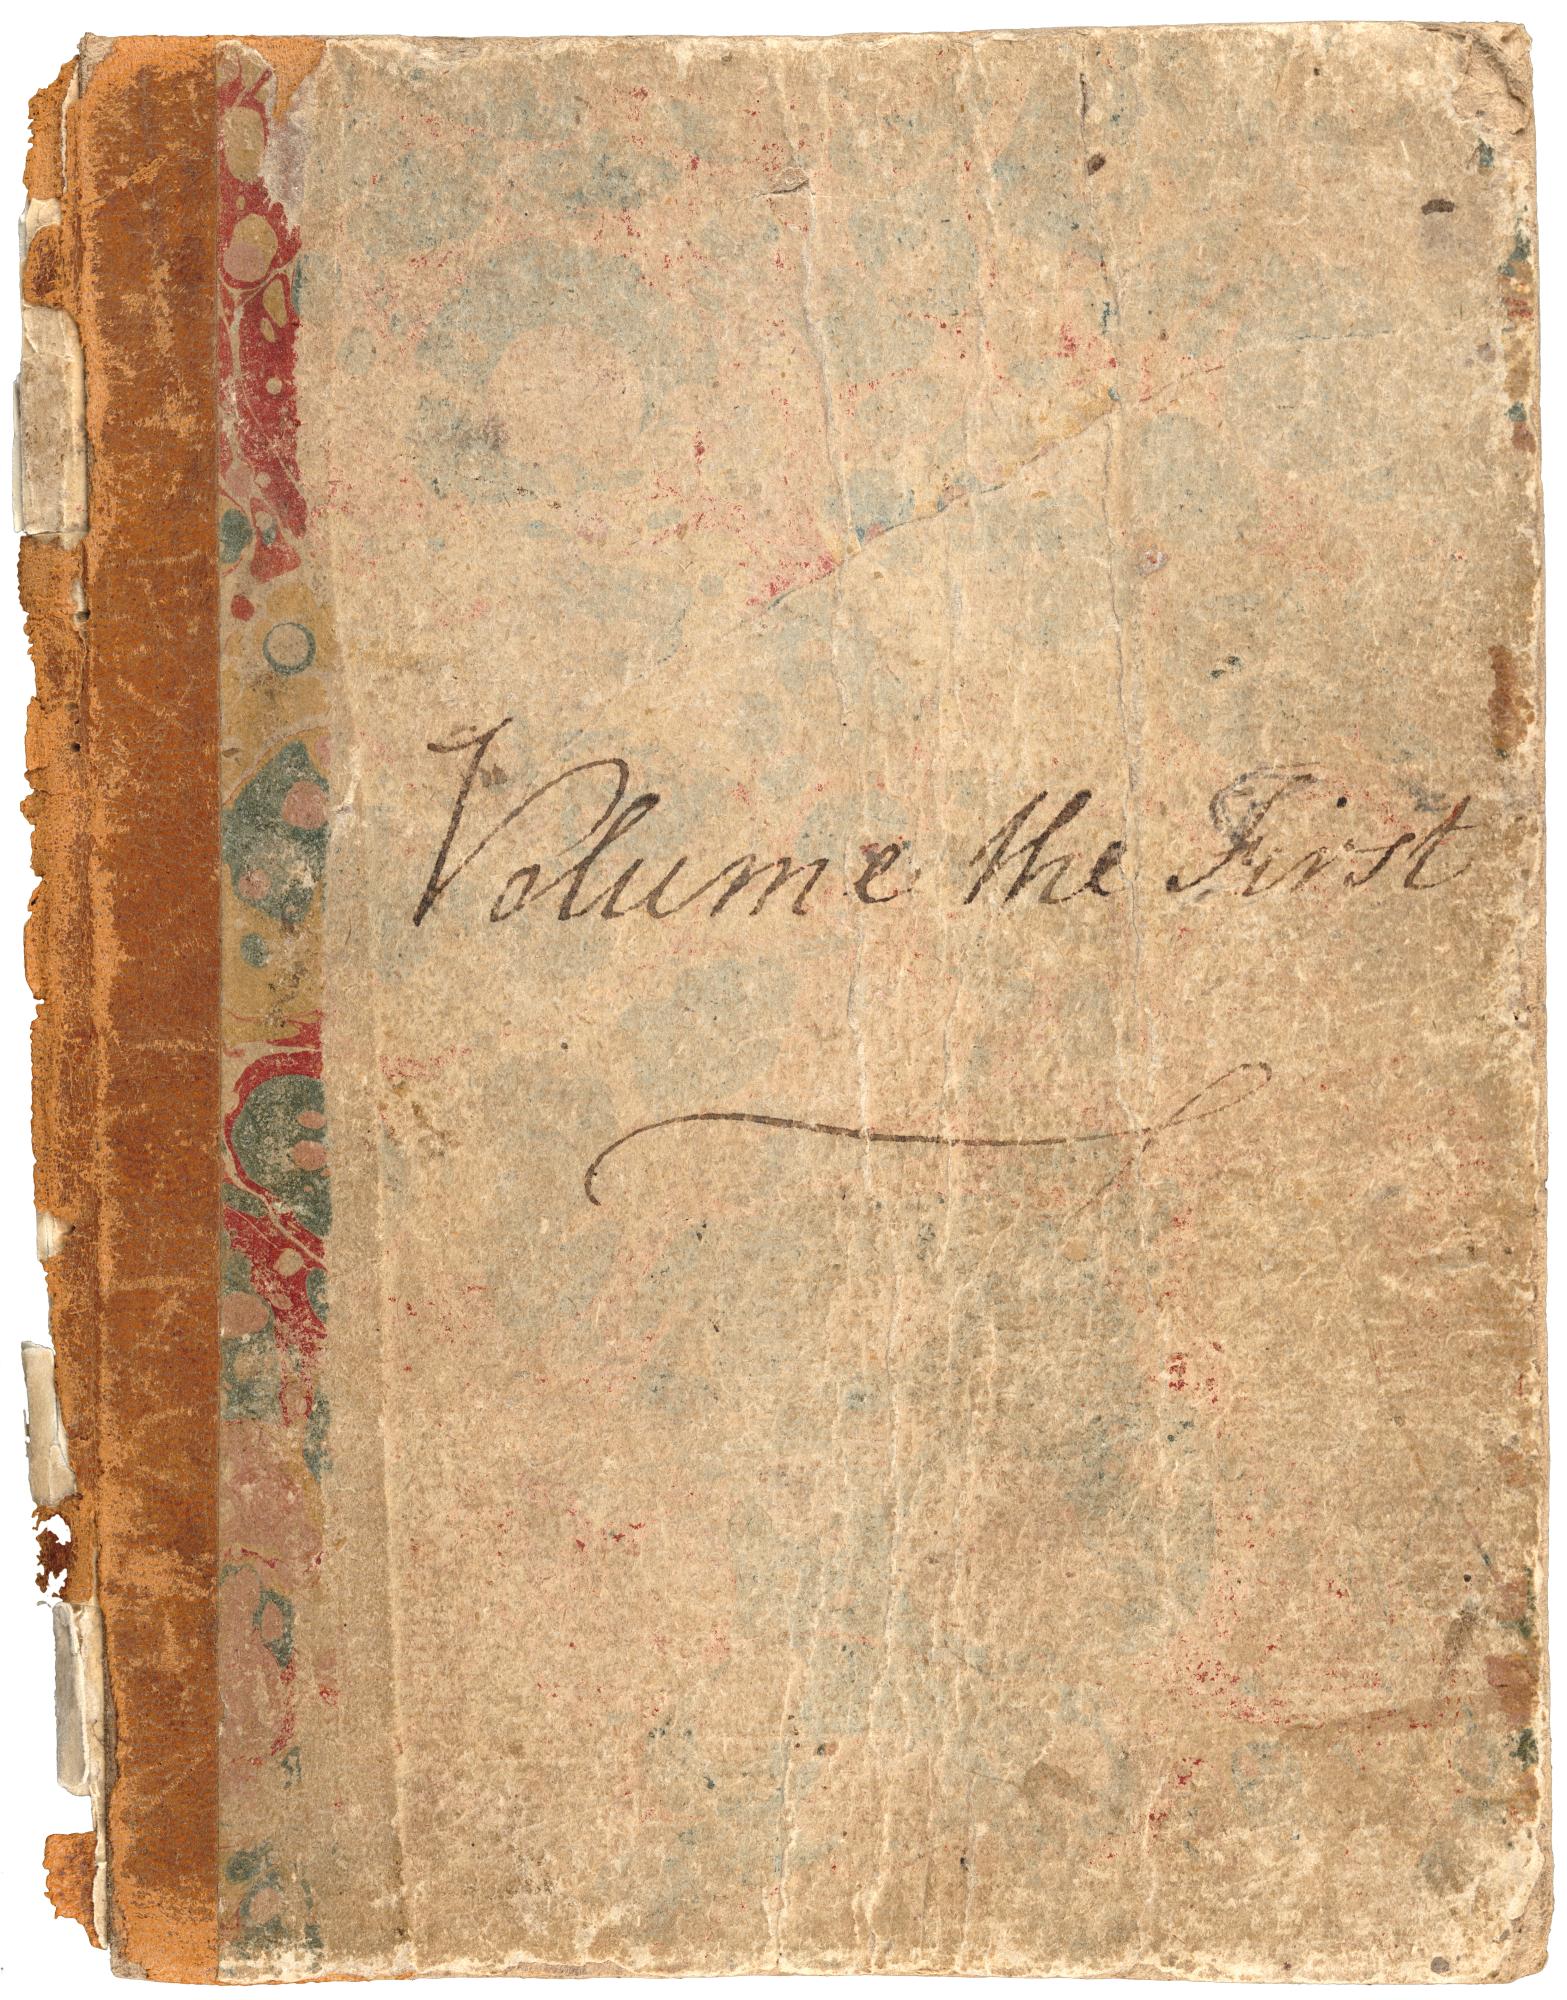 Volume the First